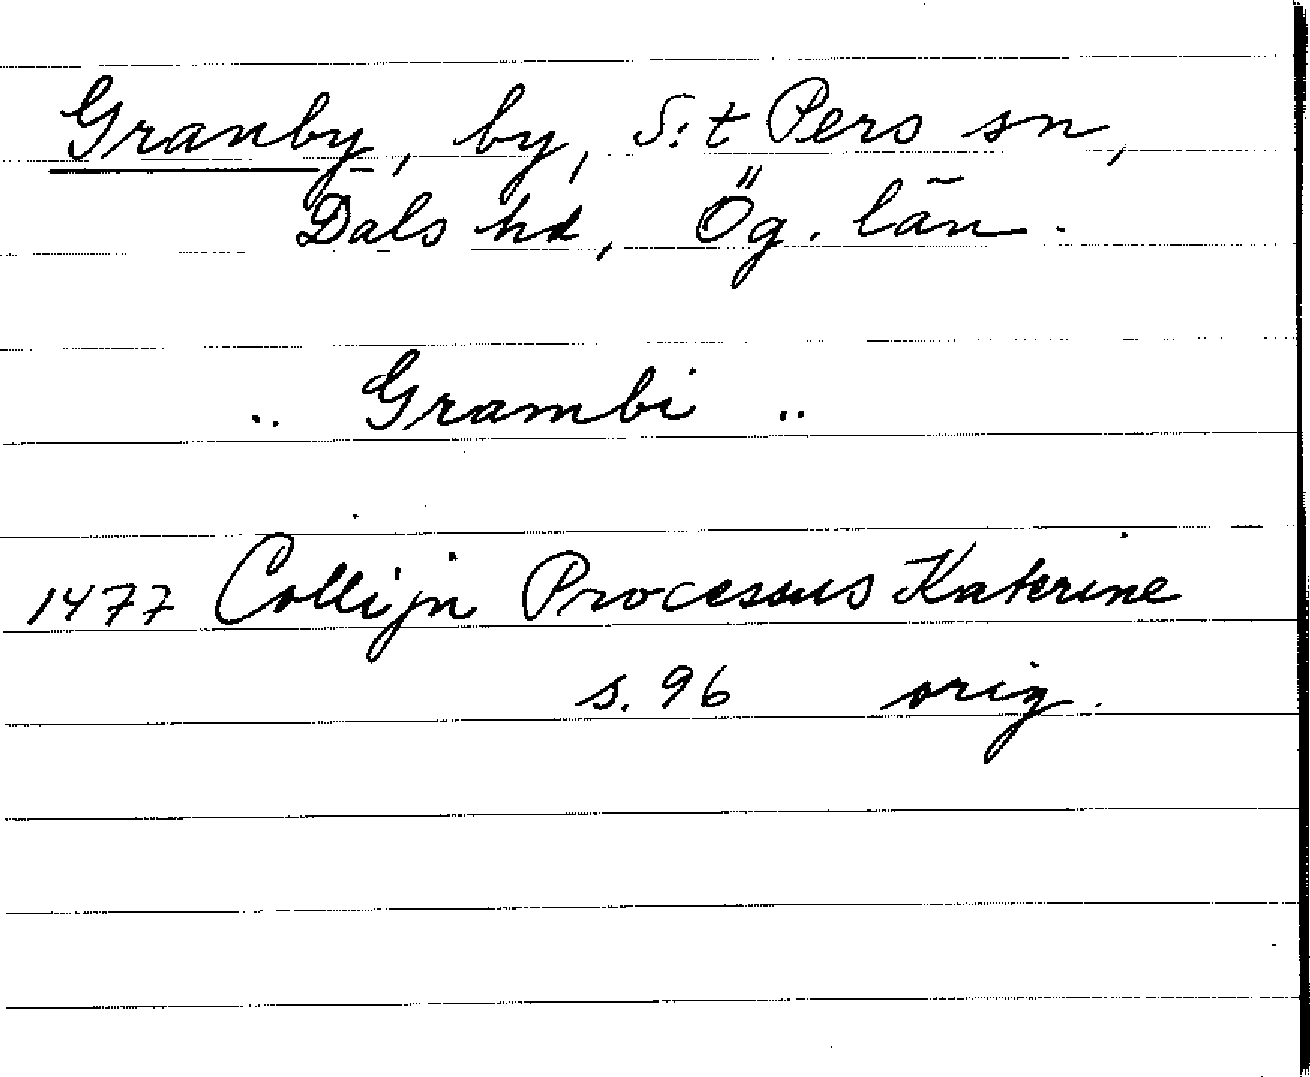 Granby, by, S:t Pers sn,
Dals hd, Ög. län.
.. Grambi ..
1477 Collijn Processus Katerine
s. 96 orig.